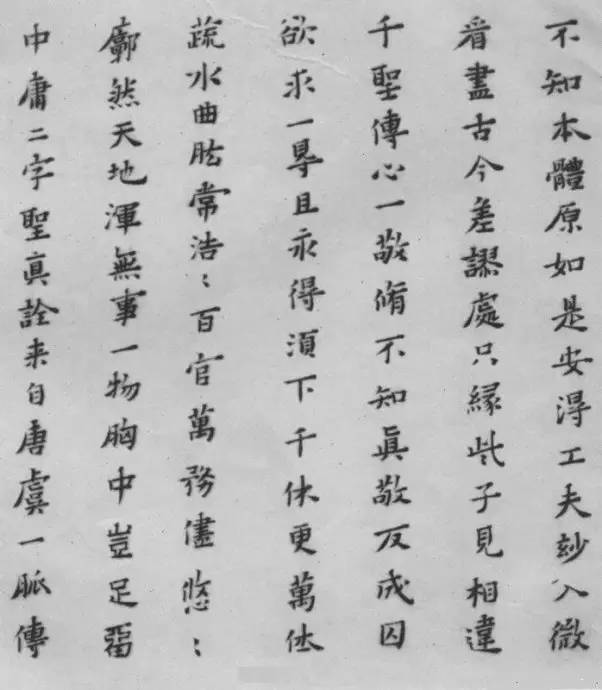 不知本體原如是安得工夫妙入微
看盡古今差謬處只緣此子見相違
千聖傳心一敬脩不知眞敬反成囚
欲求一見且未得須下千休更萬休
蔬水曲肱常浩〻百官萬務儘悠〻
廓然天地渾無事一物胸中豈足留
中庸二字聖眞詮来自唐虞一脈傳